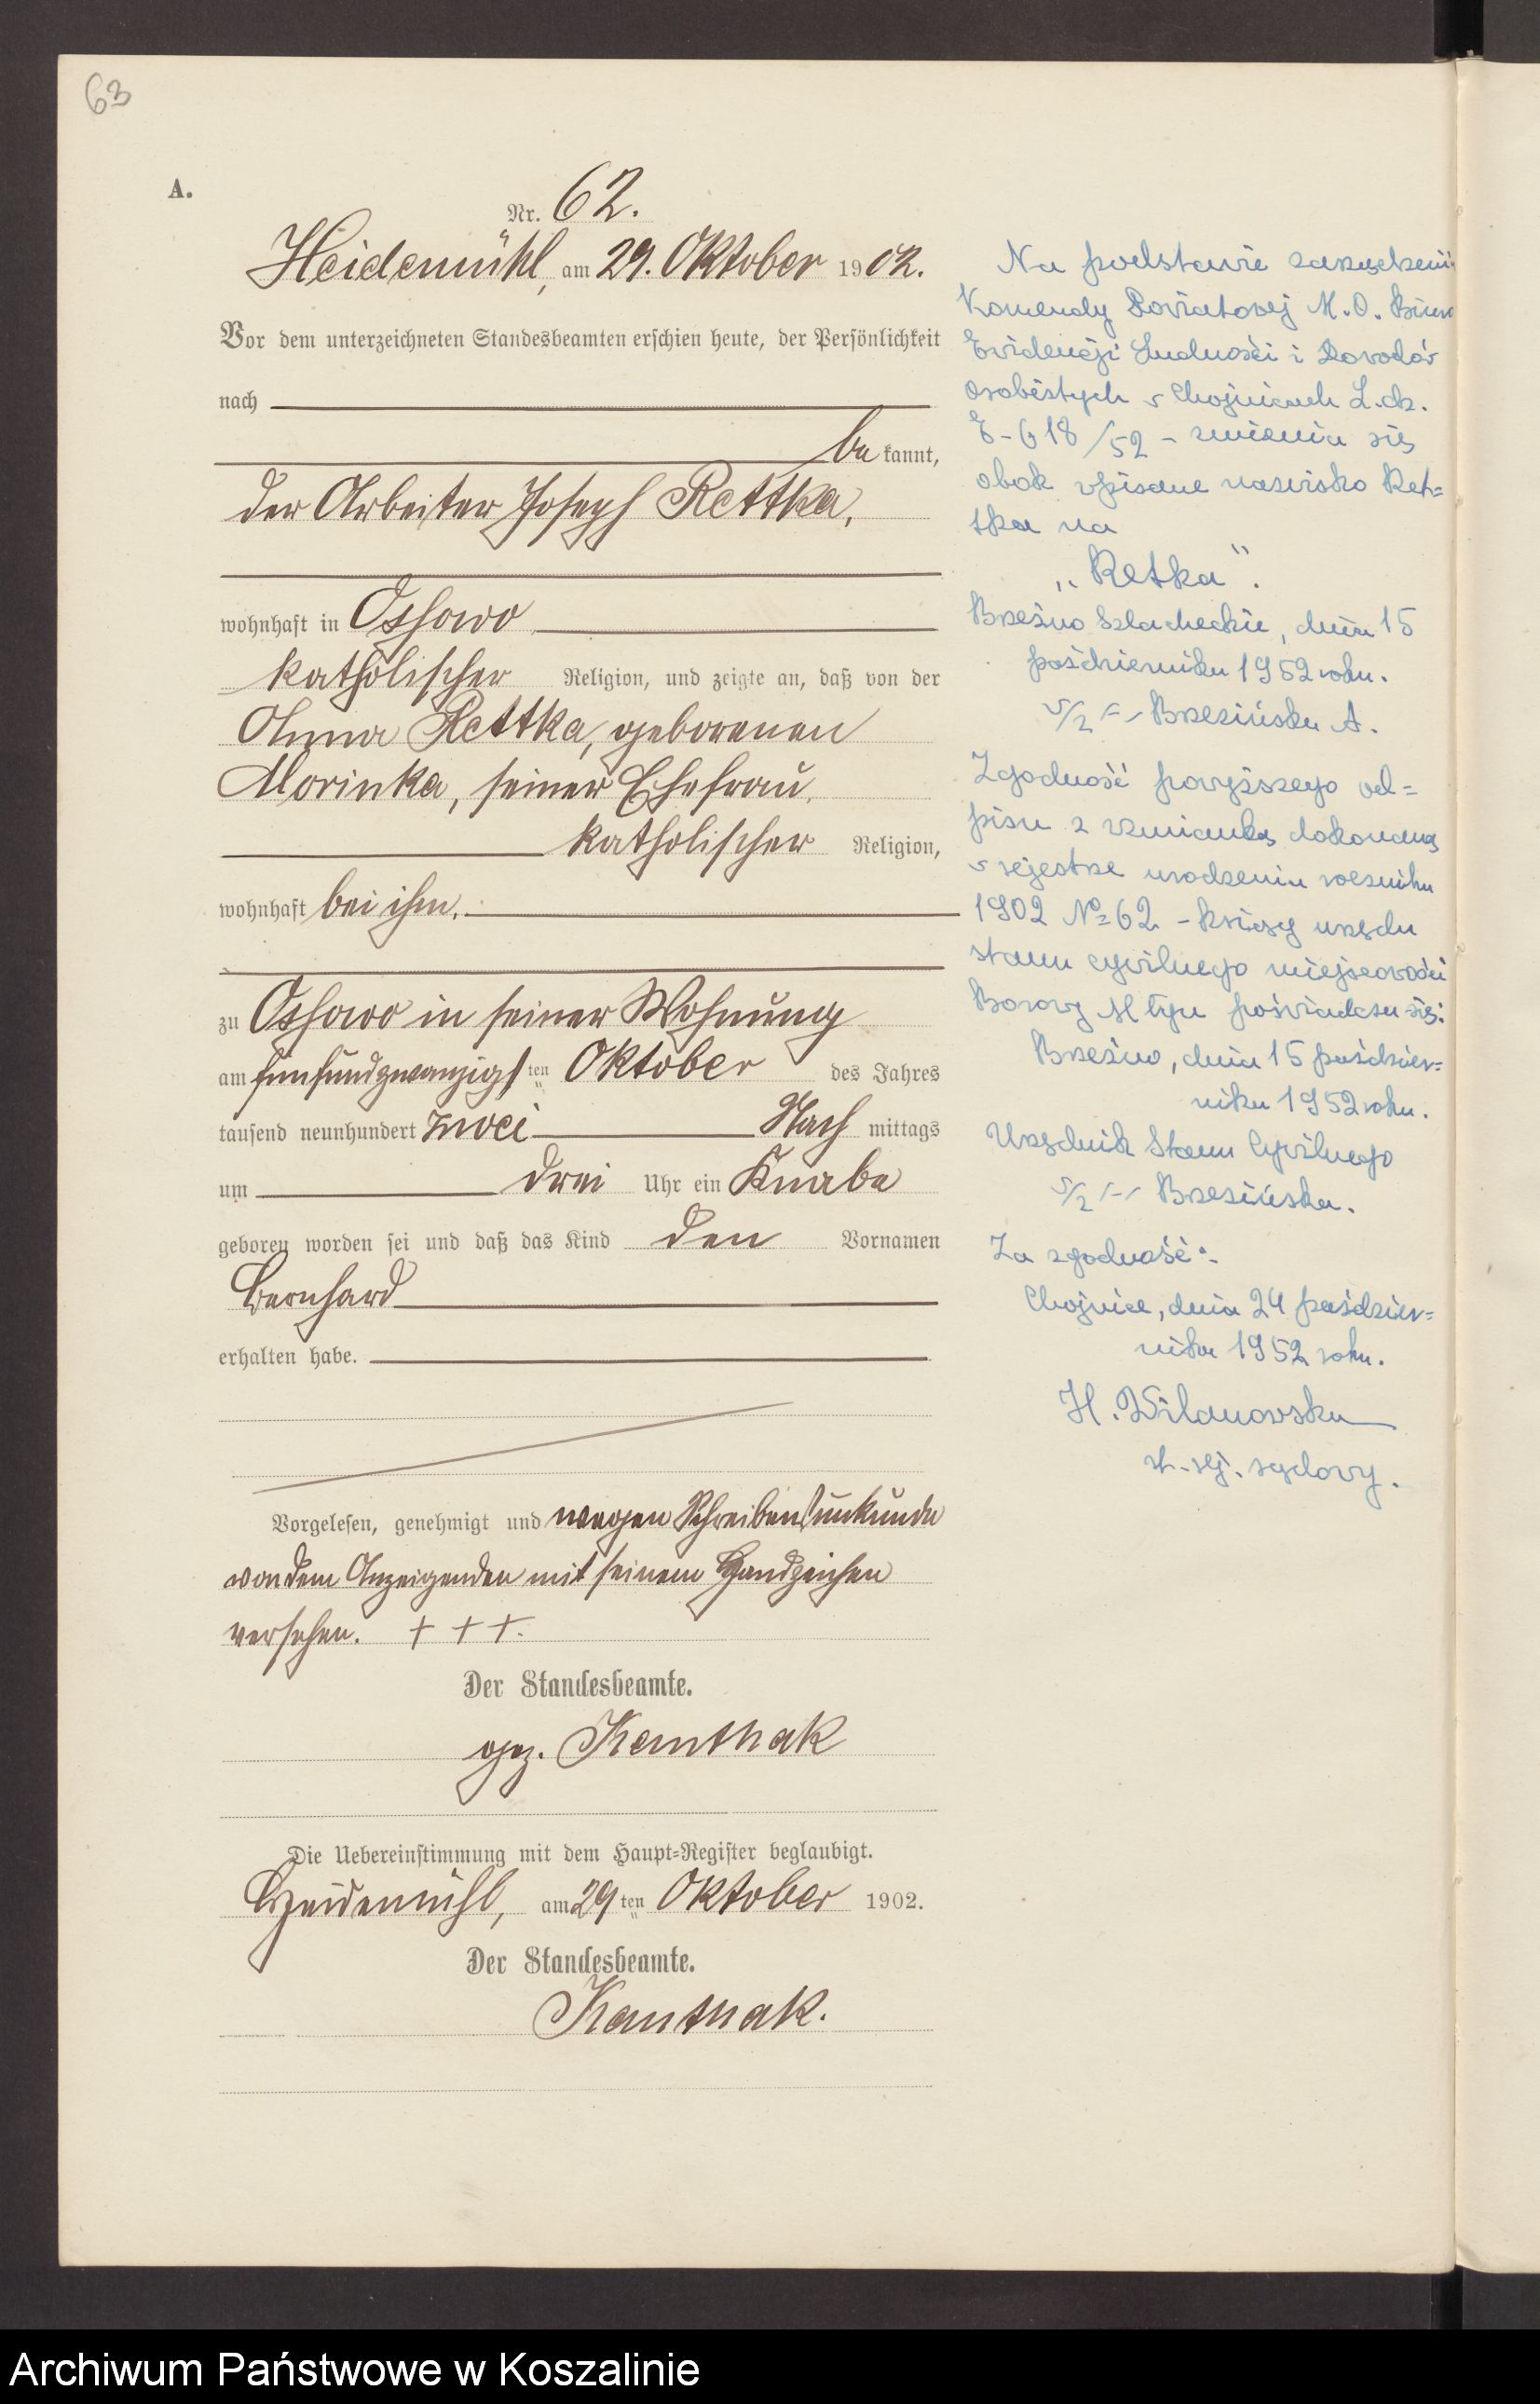 63
A.
Nr. 62.
Heidemühl, am 29. Oktober 1902.
Vor dem unterzeichneten Standesbeamten erschien heute, der Persönlichkeit
nach
be kannt,
der Arbeiter Joseph Rettka,
wohnhaft in Ossowo
katholischer Religion, und zeigte an, daß von der
Anna Rettka, geborenen
Morinka, seiner Ehefrau,
katholischer Religion,
wohnhaft bei ihm,
zu Ossowo in seiner Wohnung
am fünfundzwanzigsten Oktober des Jahres
tausend neunhundert zwei Nach mittags
um drei Uhr ein Knabe
geboren worden sei und daß das Kind den Vornamen
Bernhard
erhalten habe.
Vorgelesen, genehmigt und wegen Schreibensunkunde
von dem Anzeigenden mit seinem Handzeichen
versehen. + + +.
Der Standesbeamte.
gez. Kanthak
Die Uebereinstimmung mit dem Haupt-Register beglaubigt.
Heidemühl, am 29ten Oktober 1902.
Der Standesbeamte.
Kanthak.
Na podstawie zarządzenia
Komendy Powiatowej M.O. Biuro
Ewidencji Ludności i Dowodów
osobistych w Chojnicach L.dz.
E-618/52 - zmienia się
obok wpisane nazwisko Ret=
tka na
„Retka".
Brzeźno Szlacheckie, dnia 15
października 1952 roku.
Brzezińska A.
Zgodność powyższego od=
pisu z wzmianką dokonaną
w rejestrze urodzenia rocznika
1902 No 62 - księgi urzędu
stanu cywilnego miejscowości
Borowy Młyn poświadcza się:
Brzeźno, dnia 15 paździer=
nika 1952 roku.
Urzędnik Stanu Cywilnego
Brzezińska.
Za zgodność:
Chojnice, dnia 24 paździer=
nika 1952 roku.
H. Wilanowska
sądowy.
Archiwum Państwowe w Koszalinie